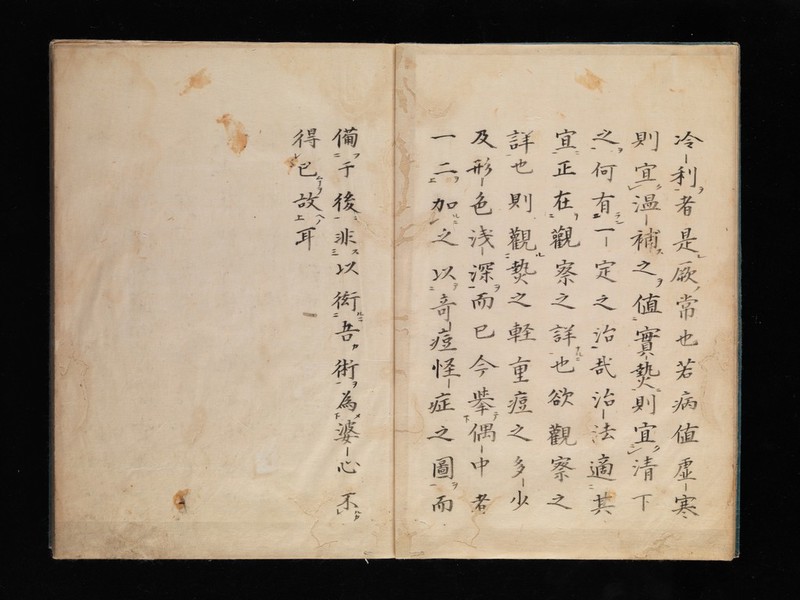 冷利者是厥常也若病値虚寒
則宜温補之値實熱則宜清下
之何有一定之治哉治法適其
宜正在觀察之詳也欲觀察之
詳也則觀熱之軽重痘之多少
及形色浅深而已今擧偶中者
一二加之以奇痘怪症之圖而
備于後非以衒吾術為婆心不
得已故耳